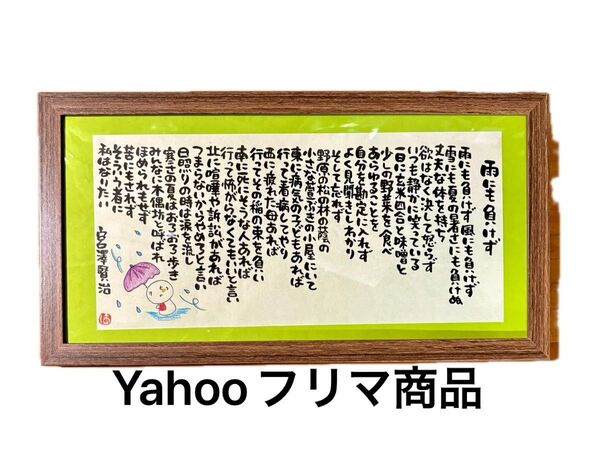 雨にも負けず
雨にも負けず風にも負けず
雪にも夏の暑さにも負けぬ
丈夫な体を持ち
欲はなく決して怒らず
いつも静かに笑っている
一日に玄米四合と味噌と
少しの野菜を食べ
あらゆることを
自分を勘定に入れず
よく見聞きしわかり
そして忘れず
野原の松の林の蔭の
小さな萱ぶきの小屋にいて
東に病気の子どもあれば
行って看病してやり
西に疲れた母あれば
行ってその稲の束を負い
南に死にそうな人あれば
行って怖がらなくてもいいと言い
北に喧嘩や訴訟があれば
つまらないからやめろと言い
日照りの時は涙を流し
寒さの夏はおろおろ歩き
みんなに木偶坊と呼ばれ
ほめられもせず
苦にもされず
そういう者に
私はなりたい
宮澤賢治
Yahooフリマ商品